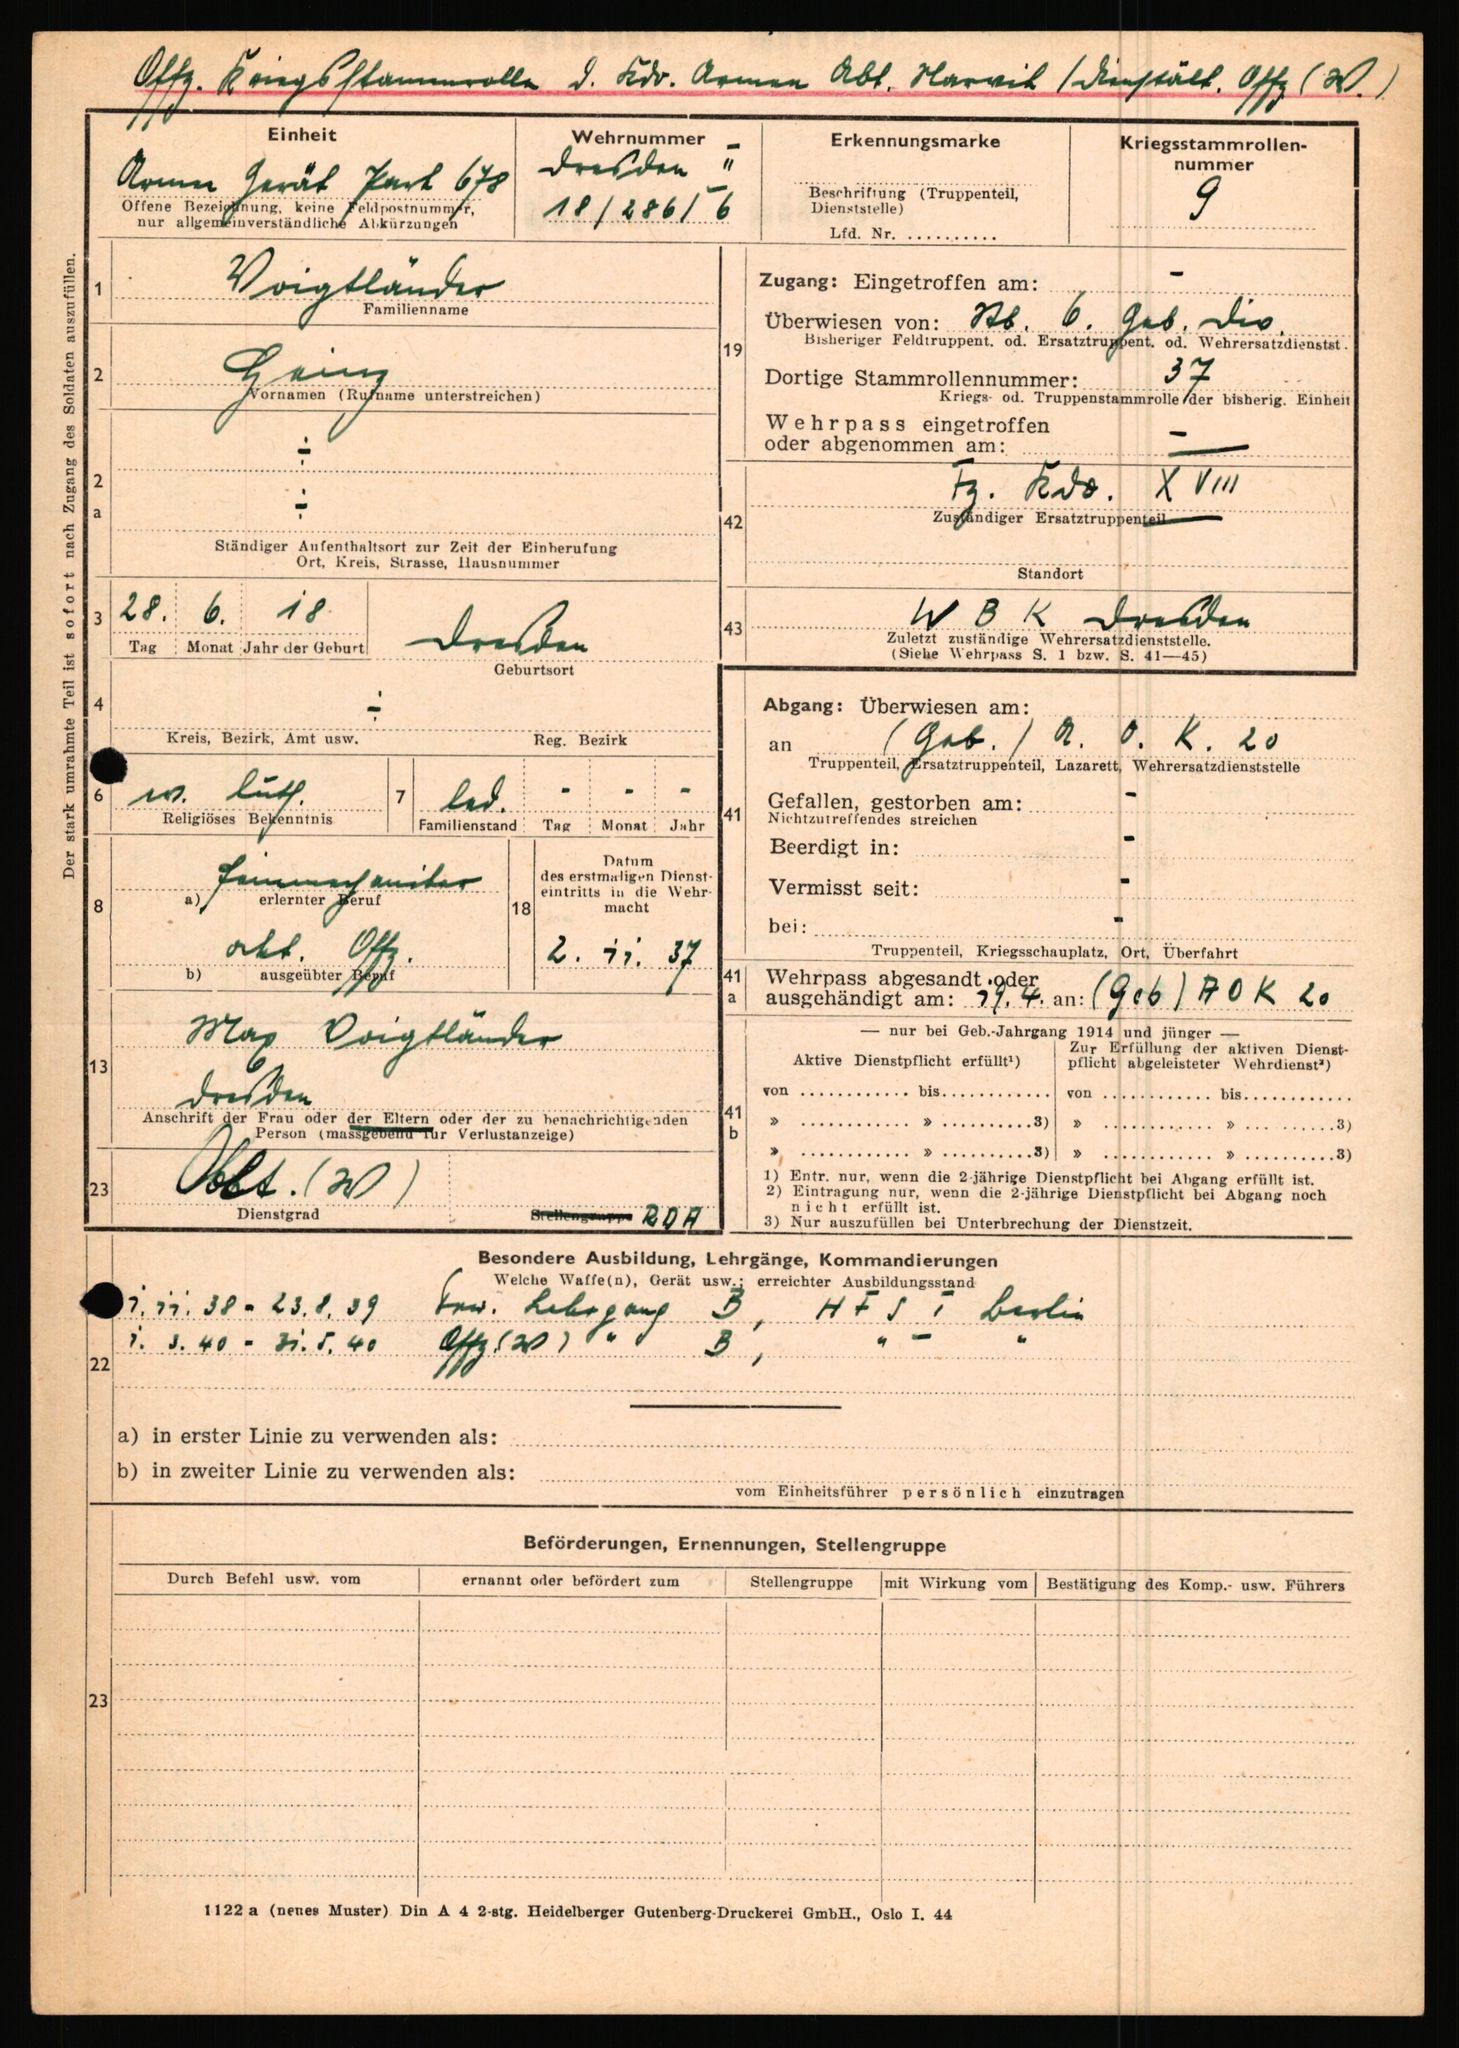 Offz. Kriegsstammrolle d. Kdr. Armee Abt. Narvik / Dienstält. Offz (W.)
Einheit
Armee Gerät Park 678
Offene Bezeichnung, keine Feldpostnummer,
nur allgemeinverständliche Abkürzungen
Wehrnummer
Dresden II
18/286/6
Erkennungsmarke
Beschriftung (Truppenteil,
Dienststelle)
Lfd. Nr. ..........
Kriegsstammrollen-
nummer
9
Der stark umrahmte Teil ist sofort nach Zugang des Soldaten auszufüllen.
1
Voigtländer
Familienname
2
Heinz
Vornamen (Rufname unterstreichen)
÷
2
a
÷
Ständiger Aufenthaltsort zur Zeit der Einberufung
Ort, Kreis, Strasse, Hausnummer
3
28. 6. 18
Tag Monat Jahr der Geburt
Dresden
Geburtsort
4
÷
Kreis, Bezirk, Amt usw. Reg. Bezirk
6
ev. luth.
Religiöses Bekenntnis
7
led. - - -
Familienstand Tag Monat Jahr
8
Feinmechaniker
a) erlernter Beruf
akt. Offz.
b) ausgeübter Beruf
18
Datum
des erstmaligen Dienst-
eintritts in die Wehr-
macht
2. 11. 37
13
Max Voigtländer
Dresden
Anschrift der Frau oder der Eltern oder der zu benachrichtigenden
Person (massgebend für Verlustanzeige)
23
Oblt. (W)
Dienstgrad
Stellengruppe RDA
19
Zugang: Eingetroffen am: -
Überwiesen von: Stb. 6. Geb. Div.
Bisheriger Feldtruppent. od. Ersatztruppent. od. Wehrersatzdienstst.
Dortige Stammrollennummer: 37
Kriegs- od. Truppenstammrolle der bisherig. Einheit
Wehrpass eingetroffen
oder abgenommen am: -
42
Fz. Kdo. XVIII
Zuständiger Ersatztruppenteil
Standort
43
W B K Dresden
Zuletzt zuständige Wehrersatzdienststelle.
(Siehe Wehrpass S. 1 bzw. S. 41—45)
41
Abgang: Überwiesen am:
an (Geb.) A. O. K. 20
Truppenteil, Ersatztruppenteil, Lazarett, Wehrersatzdienststelle
Gefallen, gestorben am: -
Nichtzutreffendes streichen
Beerdigt in: -
Vermisst seit: -
bei: -
Truppenteil, Kriegsschauplatz, Ort, Überfahrt
41
a
Wehrpass abgesandt oder
ausgehändigt am: 19. 4. an: (Geb) AOK 20
— nur bei Geb.-Jahrgang 1914 und jünger —
41
b
Aktive Dienstpflicht erfüllt¹)
von ............ bis............
» ............ » ..........3)
» ............ » ..........3)
Zur Erfüllung der aktiven Dienst-
pflicht abgeleisteter Wehrdienst²)
von ............ bis............
» ............ » ..........3)
» ............ » ..........3)
1) Entr. nur, wenn die 2-jährige Dienstpflicht bei Abgang erfüllt ist.
2) Eintragung nur, wenn die 2-jährige Dienstpflicht bei Abgang noch
nicht erfüllt ist.
3) Nur auszufüllen bei Unterbrechung der Dienstzeit.
Besondere Ausbildung, Lehrgänge, Kommandierungen
Welche Waffe(n), Gerät usw.; erreichter Ausbildungsstand
1. 11. 38 - 23. 8. 39 Fw. Lehrgang B, H F S I Berlin
1. 3. 40 - 31. 5. 40 Offz. (W) " B, " — "
22
a) in erster Linie zu verwenden als:
b) in zweiter Linie zu verwenden als:
vom Einheitsführer persönlich einzutragen
Beförderungen, Ernennungen, Stellengruppe
Durch Befehl usw. vom
ernannt oder befördert zum
Stellengruppe
mit Wirkung vom
Bestätigung des Komp.- usw. Führers
23
1122 a (neues Muster) Din A 4 2-stg. Heidelberger Gutenberg-Druckerei GmbH., Oslo I. 44